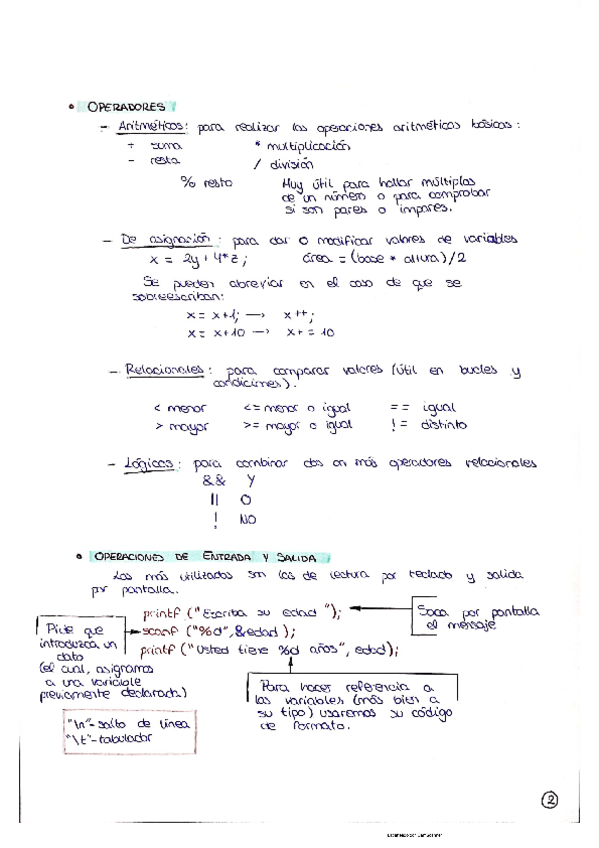 • OPERADORES
- Aritméticos: para realizar las operaciones aritméticas básicas:
+ suma * multiplicación
- resta / división
% resto Muy útil para hallar múltiplos
de un número o para comprobar
si son pares o impares.
- De asignación: para dar o modificar valores de variables
x = 2y + 4*z; área = (base * altura)/2
Se pueden abreviar en el caso de que se
sobreescriban:
x = x+1; → x++;
x = x+10 → x+=10
- Relacionales: para comparar valores (útil en bucles y
condiciones).
< menor <= menor o igual == igual
> mayor >= mayor o igual != distinto
- Lógicos: para combinar dos o más operadores relacionales
&& Y
|| O
! NO
• OPERACIONES DE ENTRADA Y SALIDA
Las más utilizadas son las de lectura por teclado y salida
por pantalla.
printf ("Escriba su edad");
Saca por pantalla
el mensaje
scanf ("%d", &edad);
printf ("Usted tiene %d años", edad);
Pide que
introduzca un
dato
(el cual, asignamos
a una variable
previamente declarada)
Para hacer referencia a
las variables (más bien a
su tipo) usaremos su código
de formato.
"\n"-salto de línea
"\t"-tabulador
2